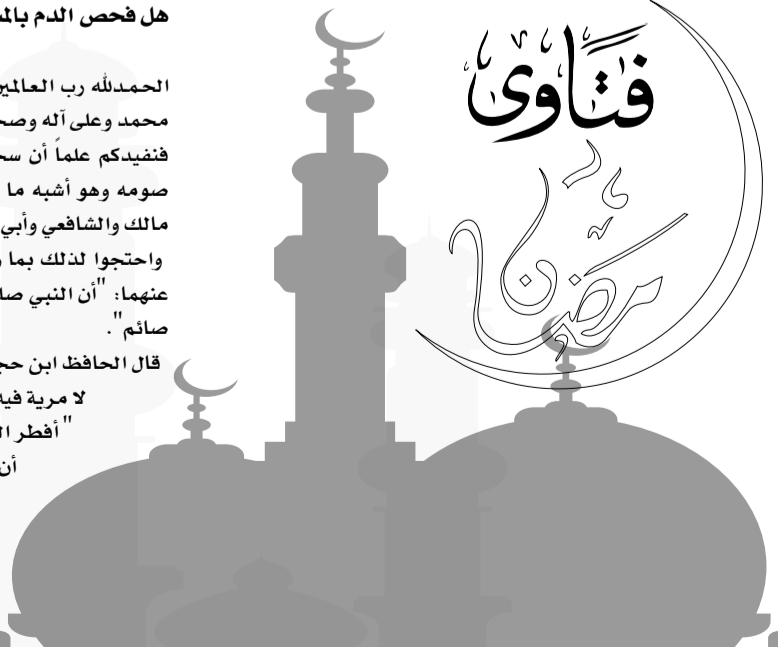 فتاوى
رمضان
هل فحص الدم
الحمدلله رب العالمين
محمد وعلى آله وصح
فنفيدكم علماً أن سح
صومه وهو أشبه ما
مالك والشافعي وأبي
واحتجوا لذلك بما
عنهما: "أن النبي صل
صائم".
قال الحافظ ابن حج
لا مرية فيه
"أفطر ال
أن